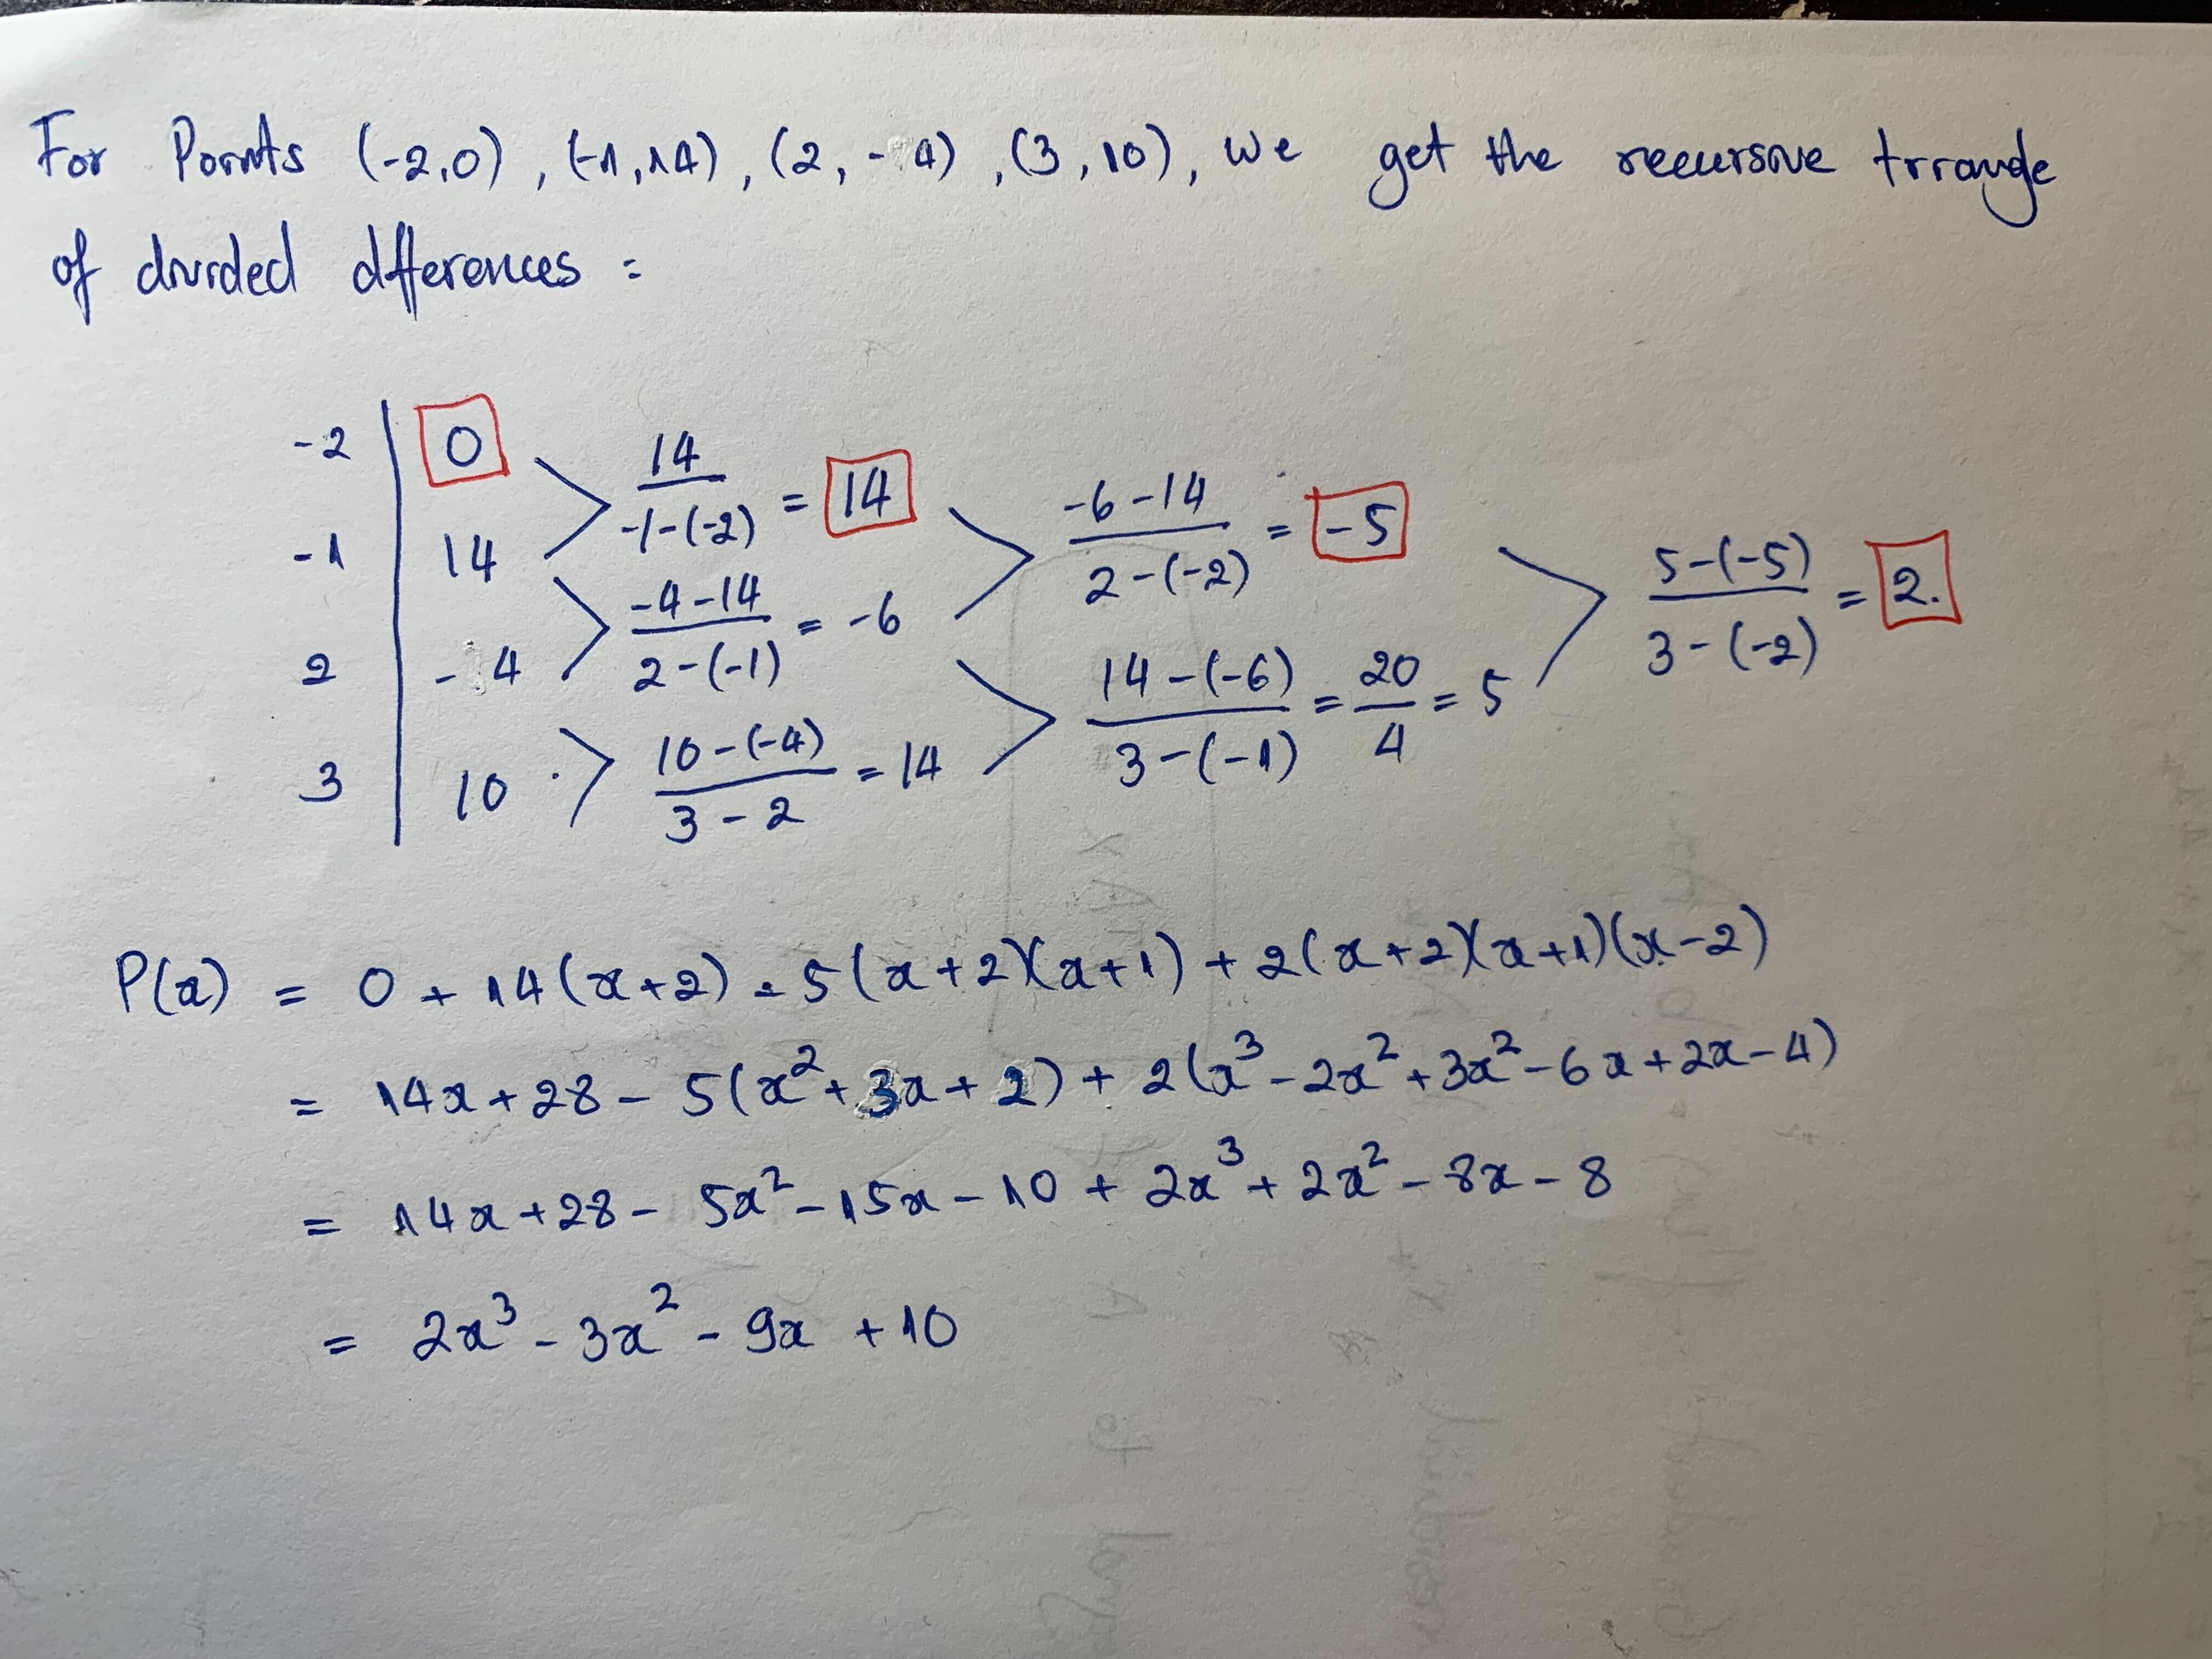 For Points (-2,0), (-1,14), (2, - 4), (3,10), we get the recursive triangle
of divided differences :
-2 | 0
14 / -1-(-2) = 14
-6-14 / 2-(-2) = -5
-1 | 14
5-(-5) / 3-(-2) = 2.
-4-14 / 2-(-1) = -6
2 | - 4
14-(-6) / 3-(-1) = 20 / 4 = 5
3 | 10
10-(-4) / 3-2 = 14
P(x) = 0 + 14(x+2) - 5(x+2)(x+1) + 2(x+2)(x+1)(x-2)
= 14x + 28 - 5(x² + 3x + 2) + 2(x³ - 2x² + 3x² - 6x + 2x - 4)
= 14x + 28 - 5x² - 15x - 10 + 2x³ + 2x² - 8x - 8
= 2x³ - 3x² - 9x + 10